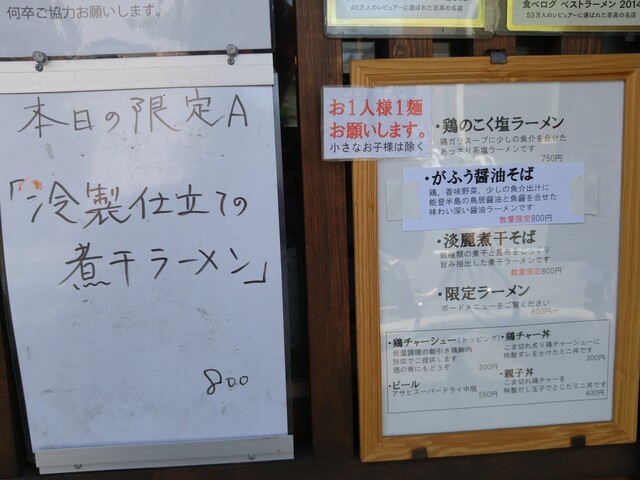 何卒ご協力お願いします。
45万人のレビュアーに選ばれた至高の名店
食べログ ベストラーメン 2014
53万人のレビュアーに選ばれた至高の名店
本日の限定A
「冷製仕立ての
煮干ラーメン」
800
お1人様1麺
お願いします。
小さなお子様は除く
・鶏のこく塩ラーメン
鶏ガラスープに少しの魚介を合せた
あっさり系塩ラーメンです
750円
・がふう醤油そば
鶏、香味野菜、少しの魚介出汁に
能登半島の鳥居醤油と魚醤を合せた
味わい深い醤油ラーメンです
数量限定800円
・淡麗煮干そば
数種類の煮干と昆布をじっくり
旨み抽出した煮干ラーメンです
数量限定800円
・限定ラーメン
ボードメニューをご覧ください
800円~
・鶏チャーシュー(トッピング)
低温調理の朝引き鶏胸肉
別皿でご提供します
酒の肴にもどうぞ
200円
・ビール
アサヒスーパードライ中瓶
550円
・鶏チャー丼
こま切れ炙り鶏チャーシューに
特製ダレをかけたミニ丼です
300円
・親子丼
こま切れ鶏チャーを
特製だし玉子でとじたミニ丼です
400円